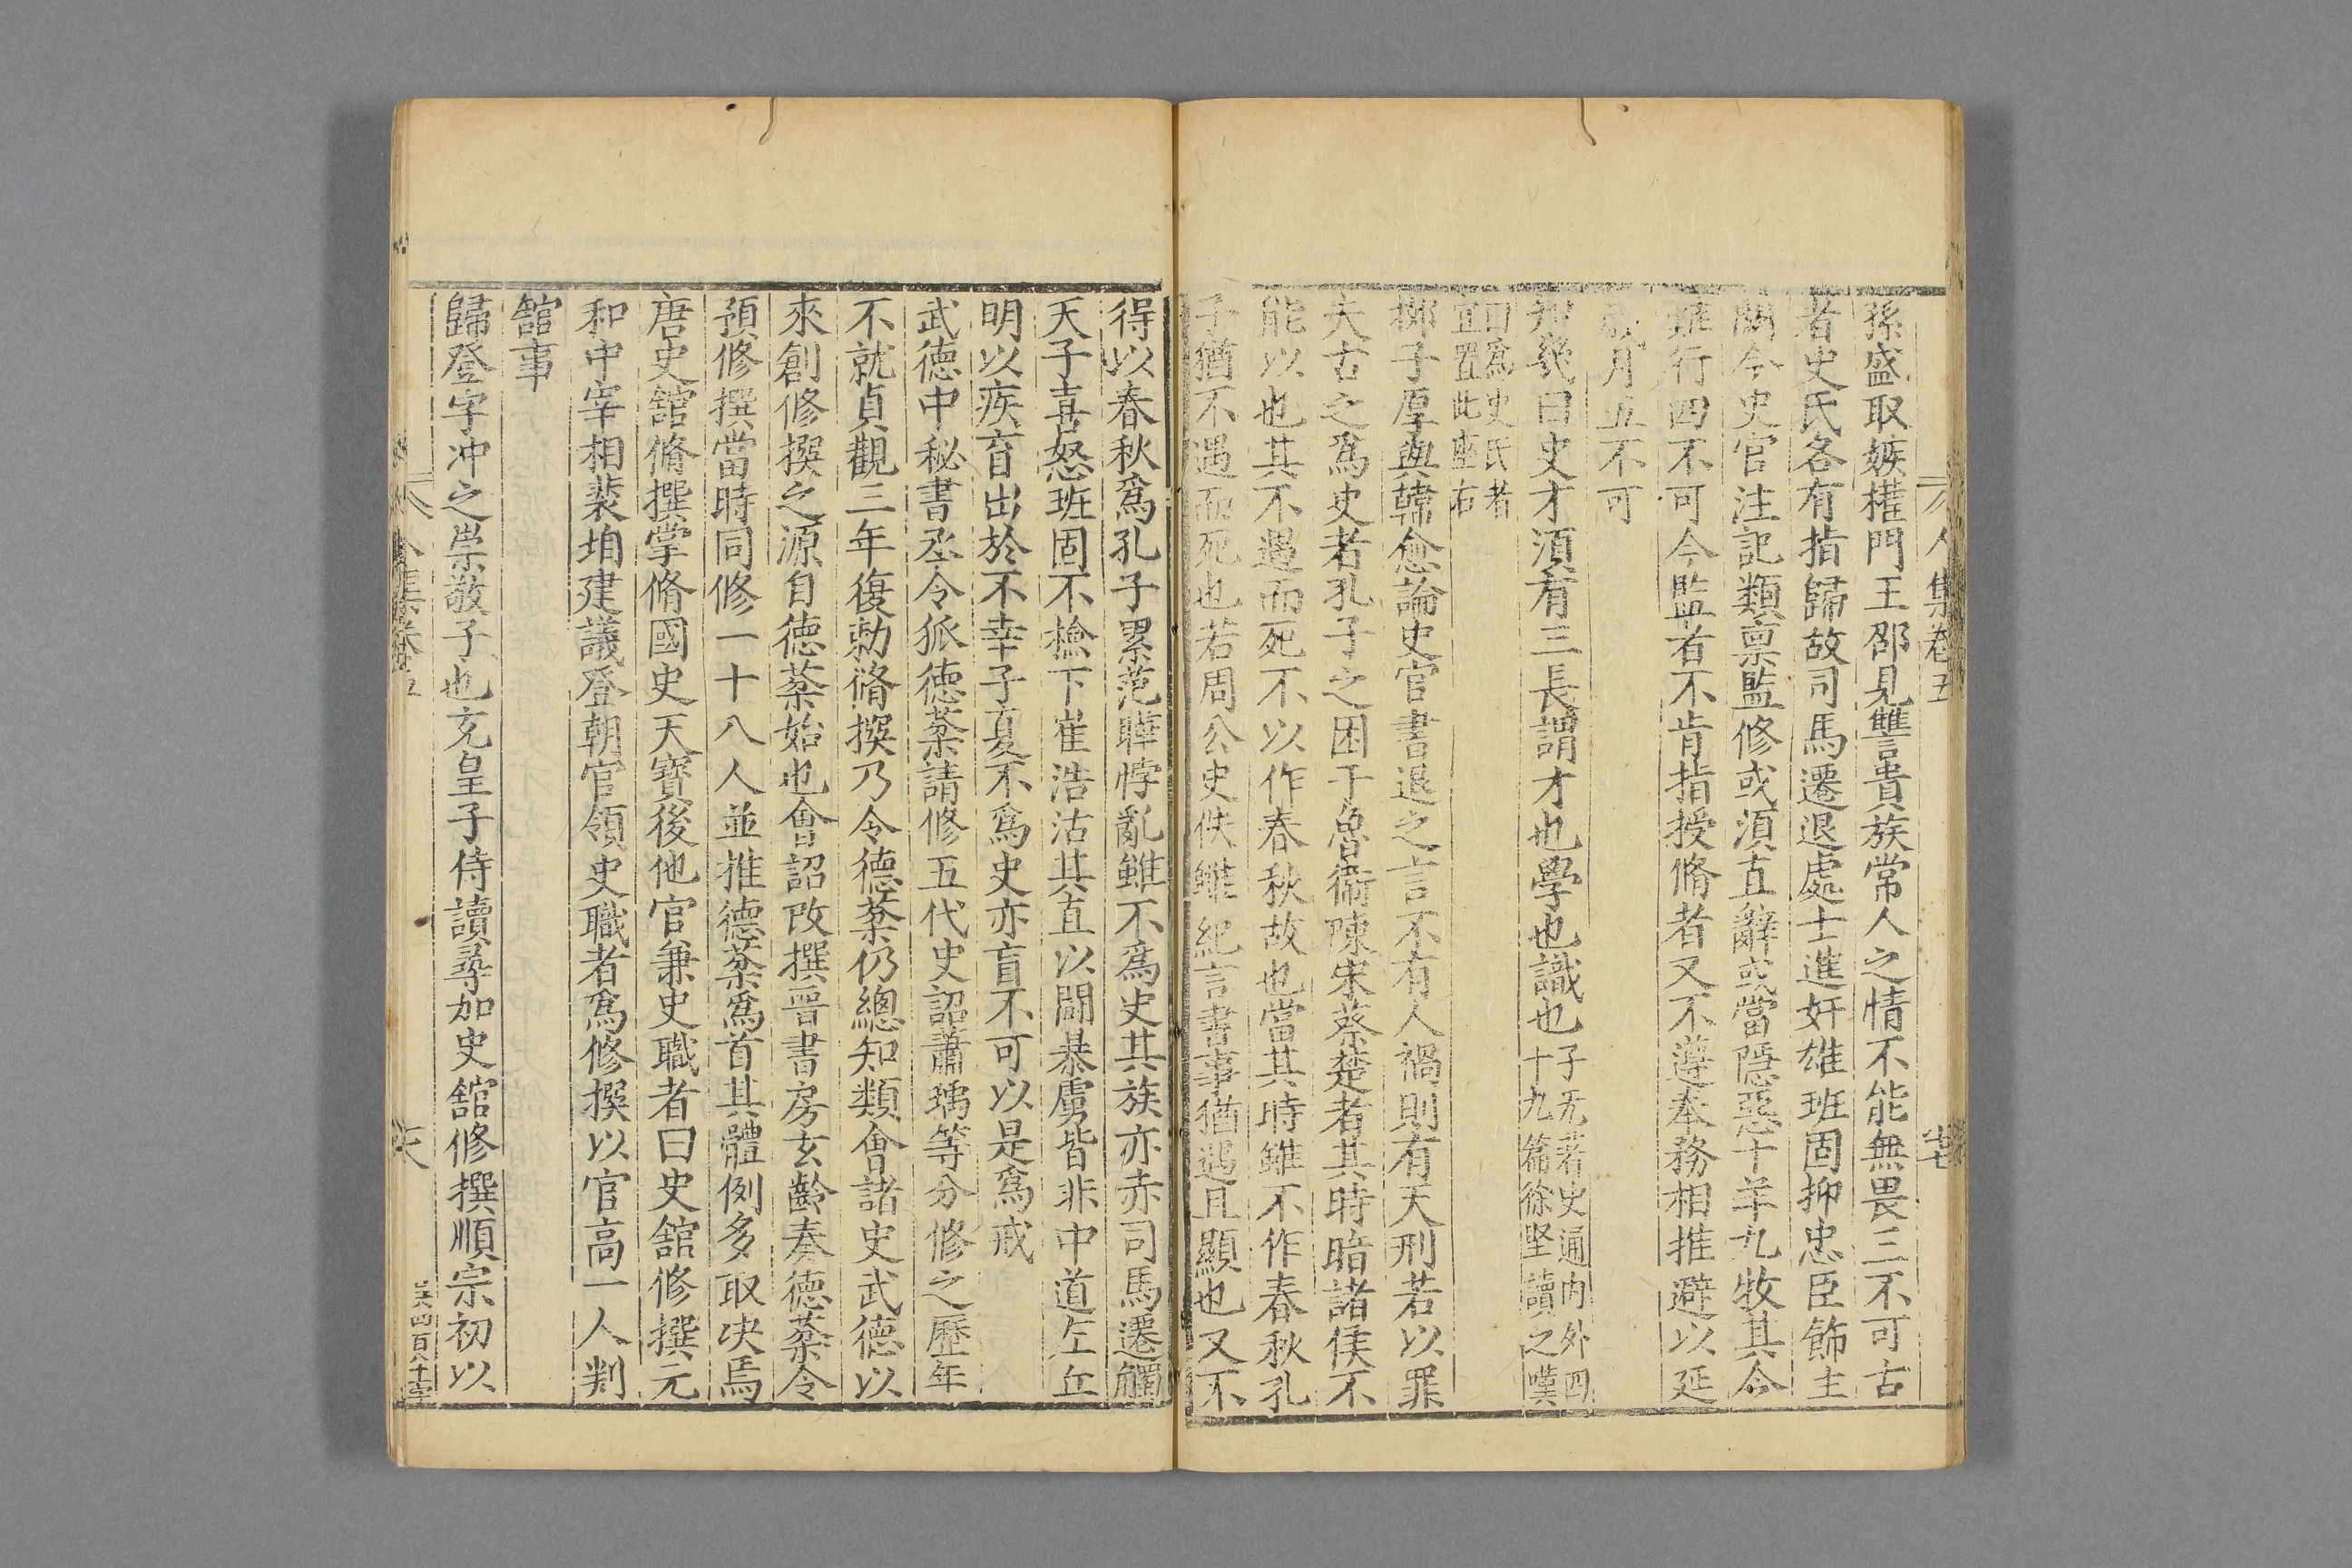 人集卷五
孫盛取嫉權門王邵見讐貴族常人之情不能無畏三不可古
者史氏各有指歸故司馬遷退處士進奸雄班固抑忠臣飾主
闕今史官注記類禀監修或湏直辭或當隱惡十羊九牧其令
難行四不可今監者不肯指授脩者又不遵奉務相推避以延
歲月五不可
知幾曰史才湏有三長謂才也學也識也子玄著史通內外四
十九篇徐堅讀之嘆
曰爲史氏者
宜置此座右
栁子厚與韓愈論史官書退之言不有人禍則有天刑若以罪
夫古之爲史者孔子之困于魯衛陳宋蔡楚者其時暗諸侯不
能以也其不遇而死不以作春秋故也當其時雖不作春秋孔
子猶不遇而死也若周公史佚雖紀言書事猶遇且顯也又不
得以春秋爲孔子累范曄悖亂雖不爲史其族亦赤司馬遷觸
天子喜怒班固不檢下崔浩沽其直以鬪暴虜皆非中道左丘
明以疾盲出於不幸子夏不爲史亦盲不可以是爲戒
武德中秘書丞令狐德棻請修五代史詔蕭瑀等分修之歷年
不就貞觀三年復勅脩撰乃令德棻仍總知類會諸史武德以
來創修撰之源自德棻始也會詔改撰晉書房玄齡奏德棻令
預修撰當時同修一十八人並推德棻爲首其體例多取决焉
唐史舘脩撰掌脩國史天寶後他官兼史職者曰史舘修撰元
和中宰相裴垍建議登朝官領史職者爲修撰以官高一人判
舘事
歸登字冲之崇敬子也充皇子侍讀尋加史舘修撰順宗初以
集卷五